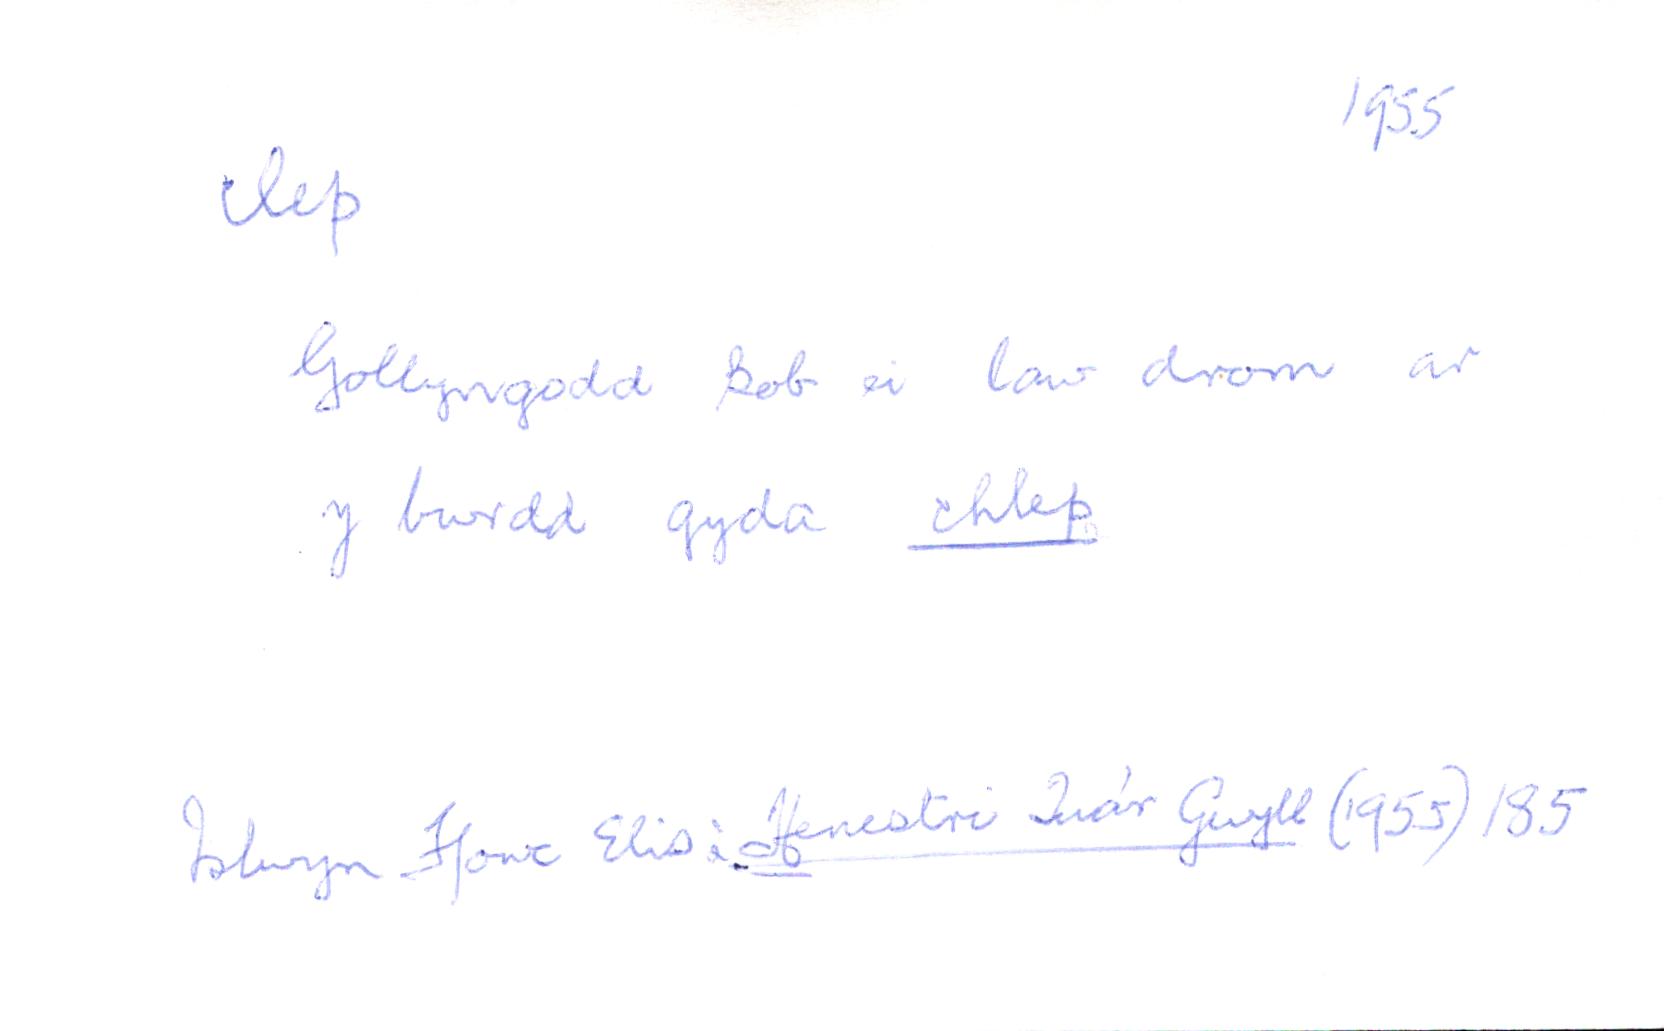 1955
clep
Gollyngodd Bob ei law drom ar
y bwrdd gyda chlep
Islwyn Ffowc Elis: Ffenestri Tua'r Gwyll (1955) 185